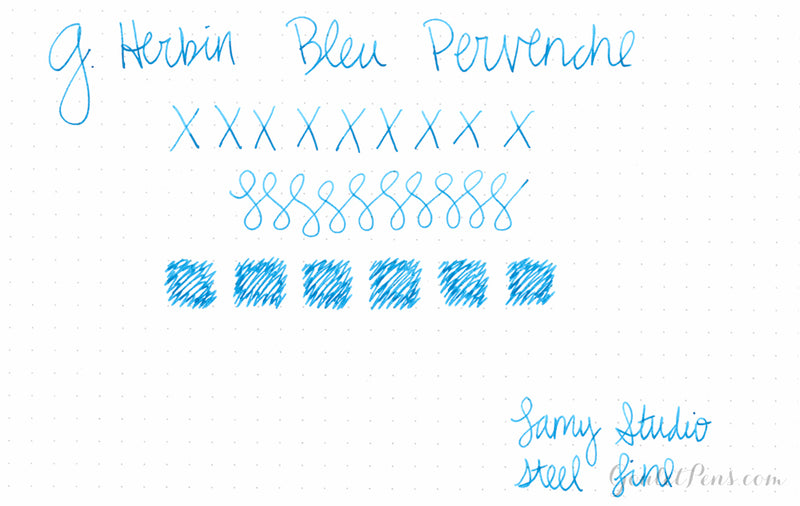 J. Herbin Bleu Pervenche
X X X X X X X X X
Lamy Studio
Steel fine
GouletPens.com